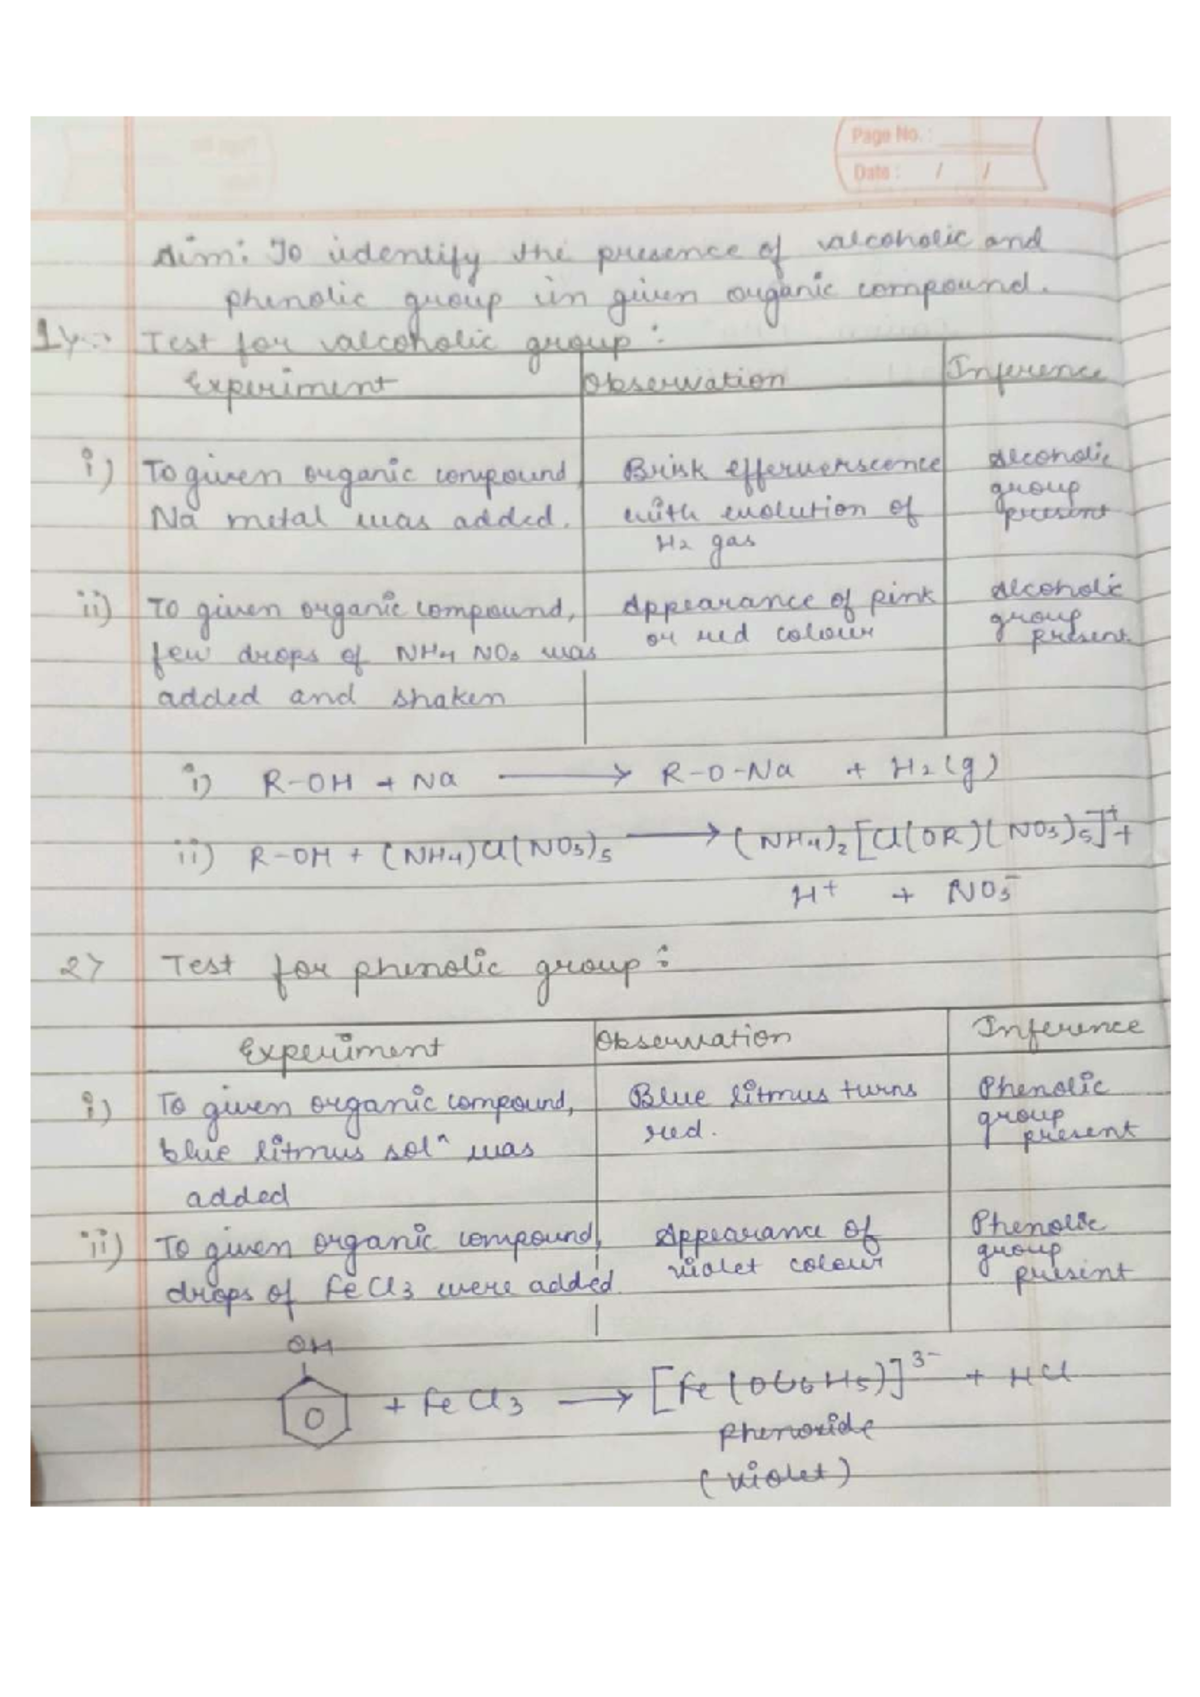 Page No. :
Date : / /
Aim: To identify the presence of alcoholic and
phenolic group in given organic compound.
1> Test for alcoholic group :
Experiment Observation Inference
i) To given organic compound, Brisk efferverscence Alcoholic
Na metal was added. with evolution of group
H2 gas present
ii) To given organic compound, Appearance of pink Alcoholic
few drops of NH4 NO3 was or red colour group
added and shaken present
i) R-OH + Na ⟶ R-O-Na + H2(g)
ii) R-OH + (NH4)Cl(NO3)5 ⟶ (NH4)2[Cl(OR)(NO3)5]+ +
H+ + NO3-
2> Test for phenolic group :
Experiment Observation Inference
i) To given organic compound, Blue litmus turns Phenolic
blue litmus solⁿ was red. group
added present
ii) To given organic compound, Appearance of Phenolic
drops of FeCl3 were added. violet colour group
present
OH
+ FeCl3 ⟶ [Fe(OC6H5)]3- + HCl
Phenoxide
(violet)